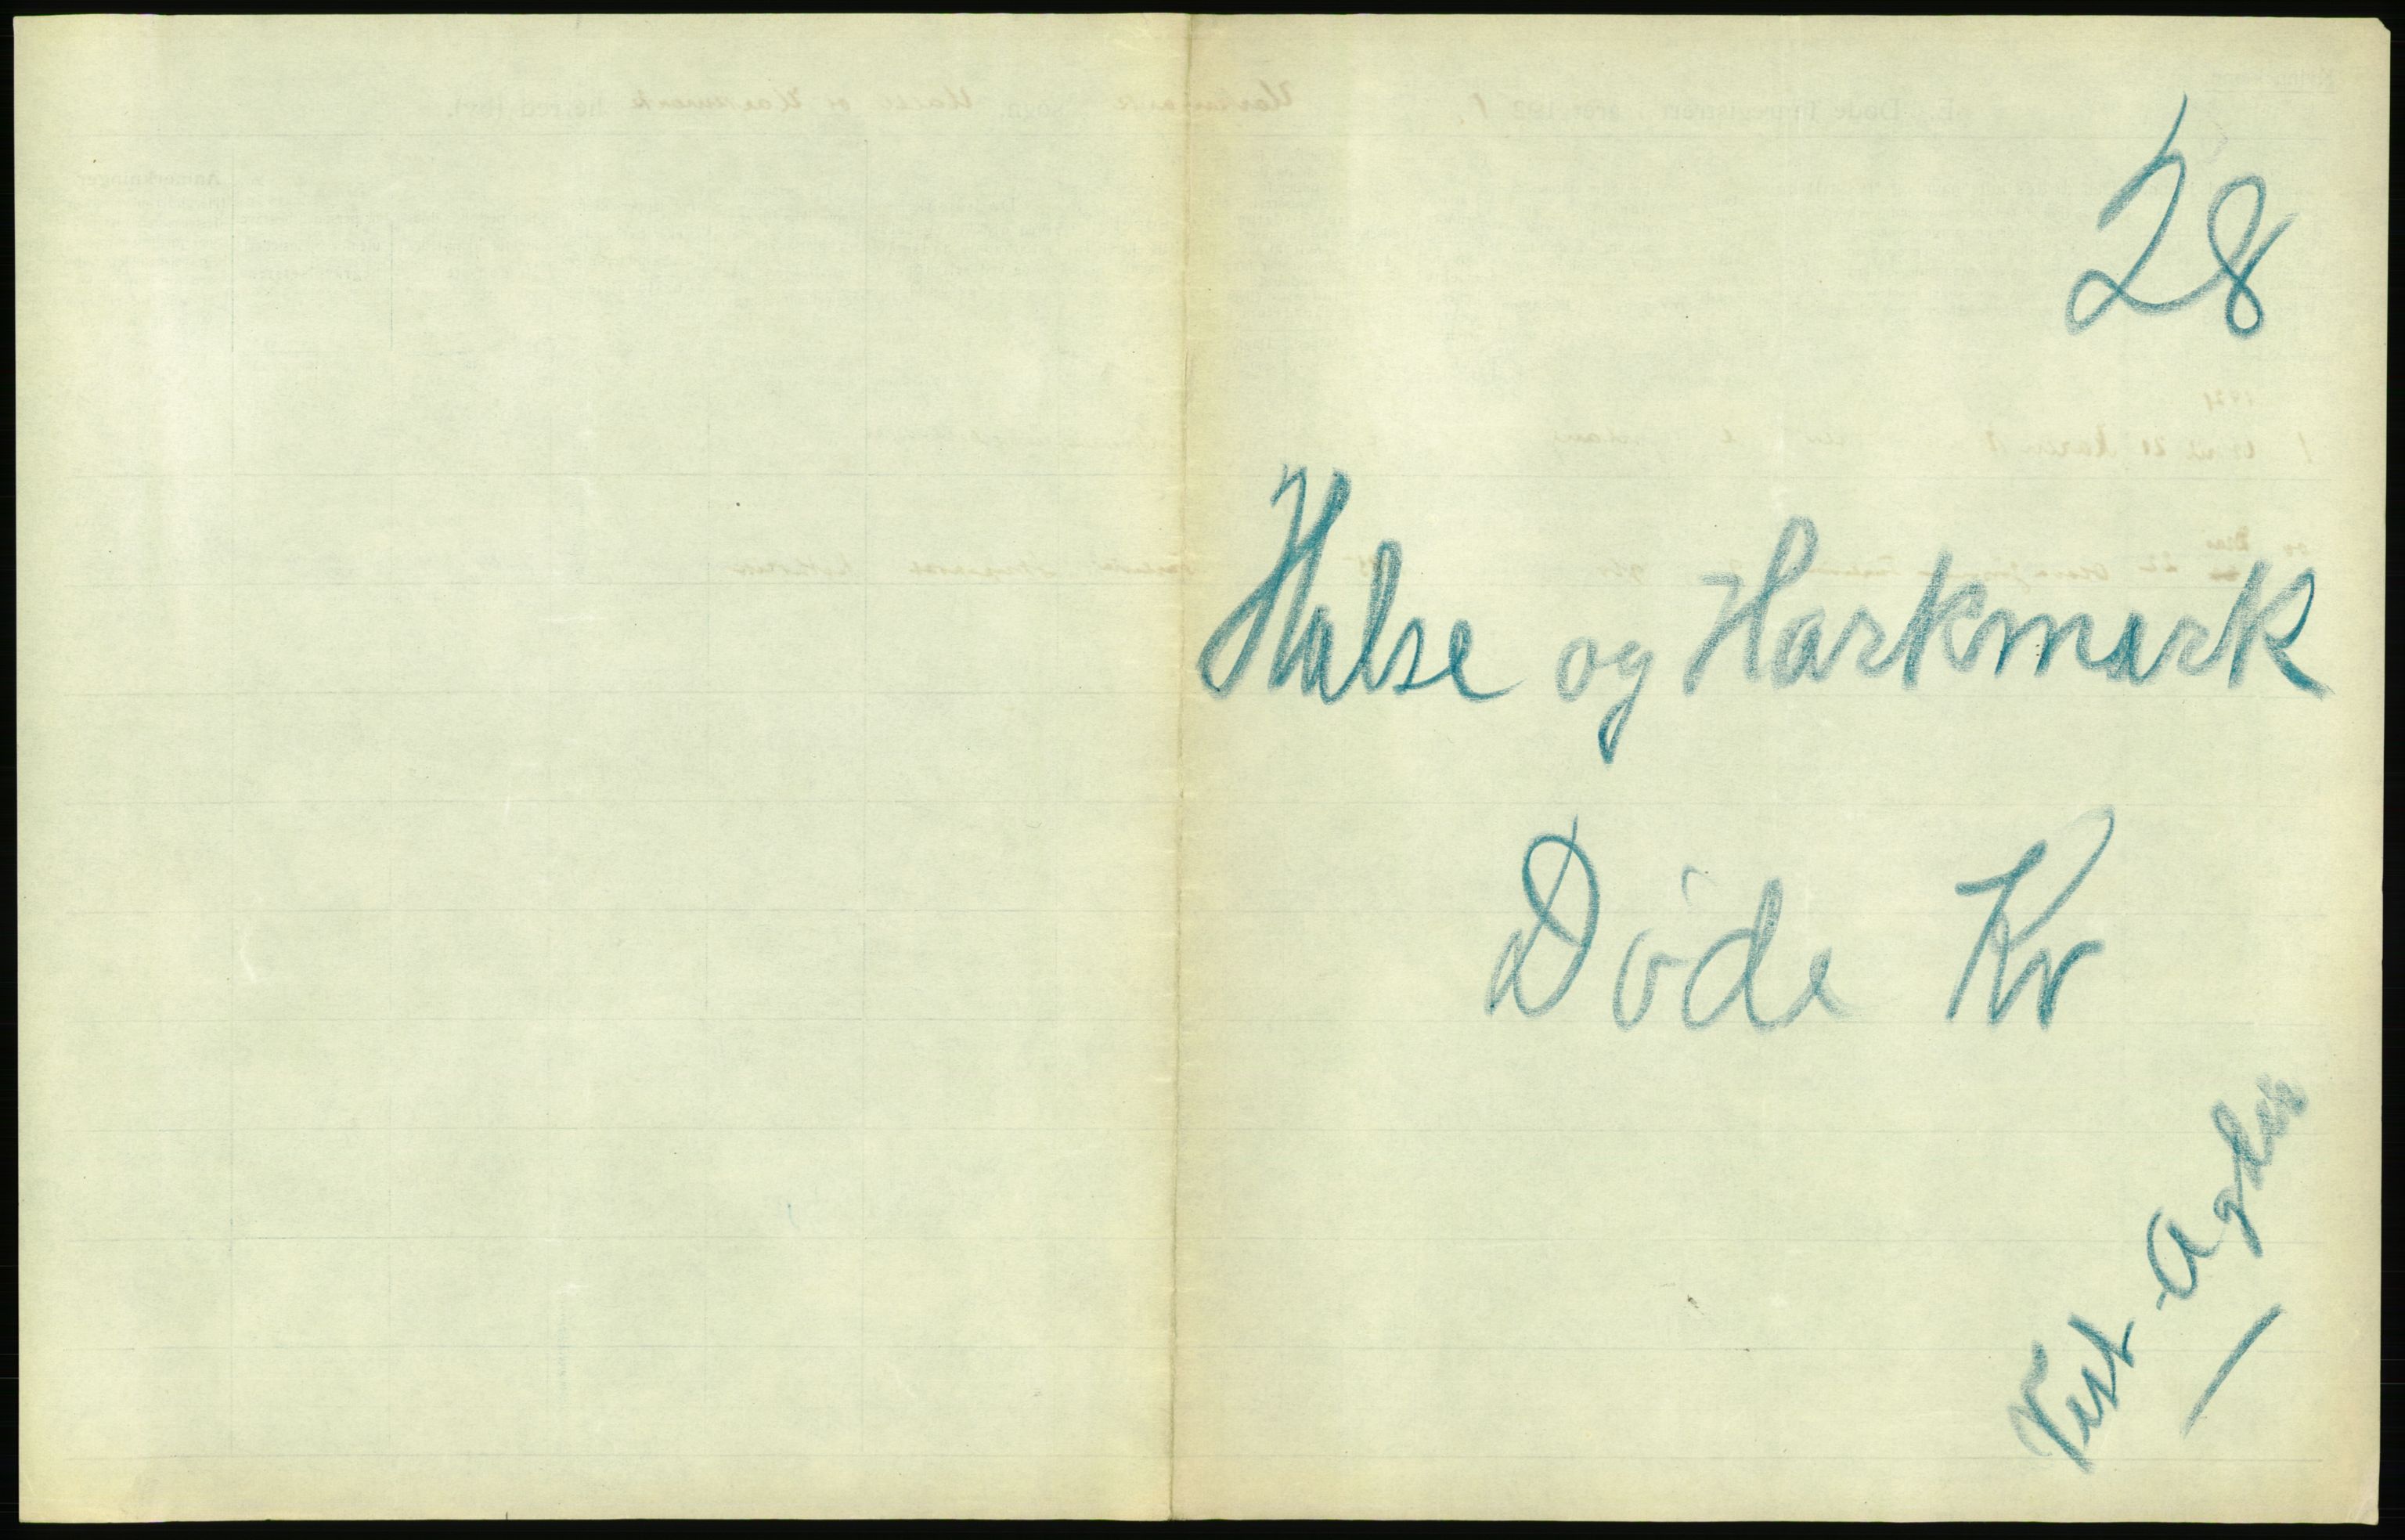 28
Halse og Harkmark
Døde Kv
Vest-Agder